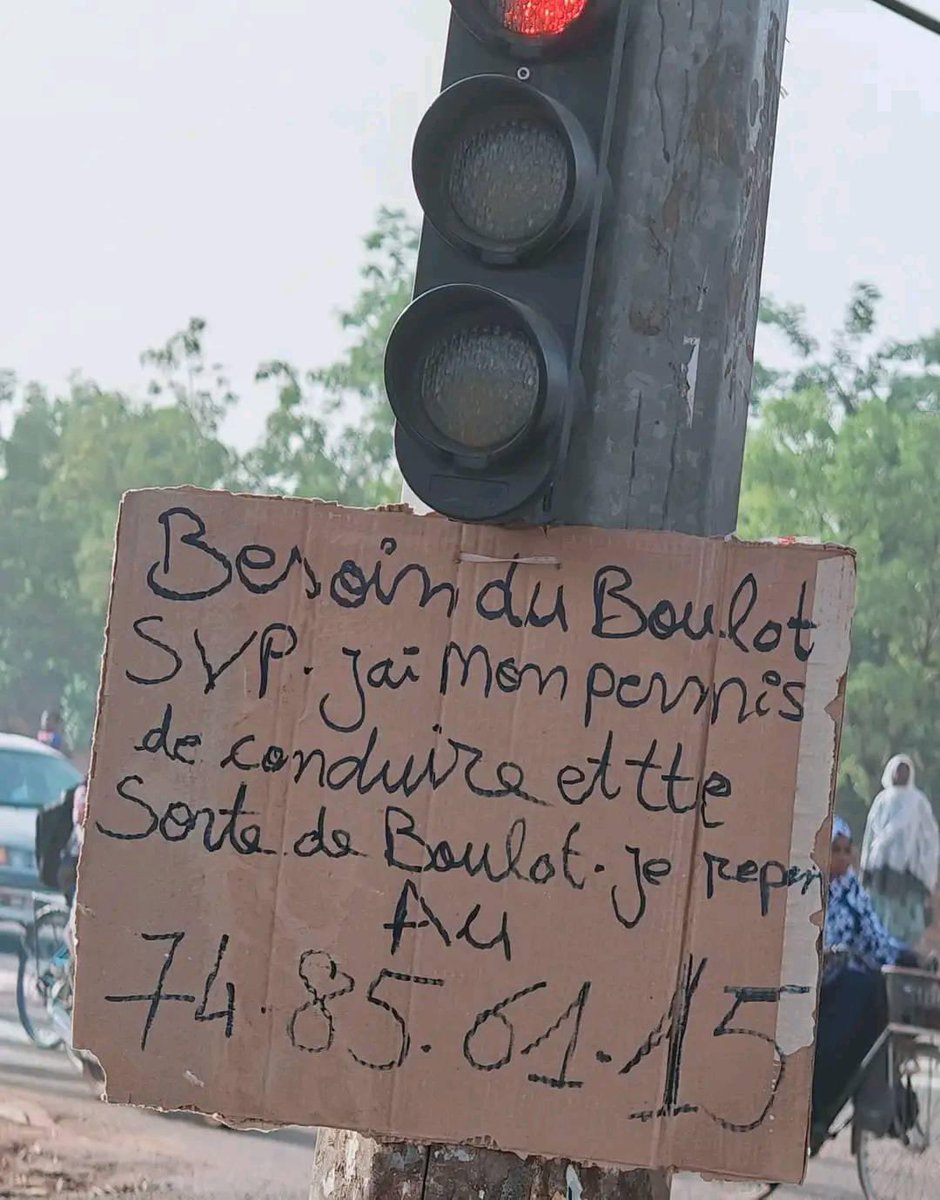 Besoin du Boulot
SVP. jai mon permis
de conduire et tte
Sorte de Boulot. je repon
Au
74.85.61.15